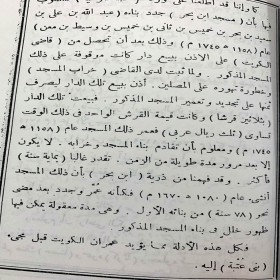 كا وإننا قد اطلعنا على
فيها بأن (مسجد ابن بحر) جدد بناءه (عبد الله بن علي بن
سعيد بن بحر بن خميس بن ثاني بن خميس بن وسيط بن معن)
(١١٥٨ هـ ١٧٤٥ م) وذلك بعد أن تحصل من (قاضي
الكويت) على الإذن ببيع دار كانت موقوفة على
المسجد المذكور. ولما ثبت لدى القاضي (خراب المسجد)
وخطورة تهوره على المصلين. أذن ببيع تلك الدار ليصرف
ثمنها على تجديد وتعمير المسجد المذكور. فبيعت تلك الدار
(بثلاثين قرشا) وكانت قيمة القرش الواحد في ذلك الوقت
تساوى (ثلث ريال عربى) فعمر ذلك المسجد عام (١١٥٨ هـ
١٧٤٥ م) ومعلوم بأن تقادم بناء المسجد وخرابه. لا يكون
إلا بعد مرور مدة طويلة من الزمن. تقدر غالبا (بماية سنة)
فأكثر. وقد فهمنا من ذرية (ابن بحر) بأن ذلك المسجد
أنشىء عام (١٠٨٠ هـ ١٦٧٠ م) فكأنه عمر وجدد بعد مضى
نحو (٧٨ سنة) من بنائه الأول. وهى مدة معقولة يمكن فيها
ظهور خلل فى بناء المسجد المذكور
فكل هذه الأدلة مما يؤيد عمران الكويت قبل مجىء
(بنى عتبة) إليه.